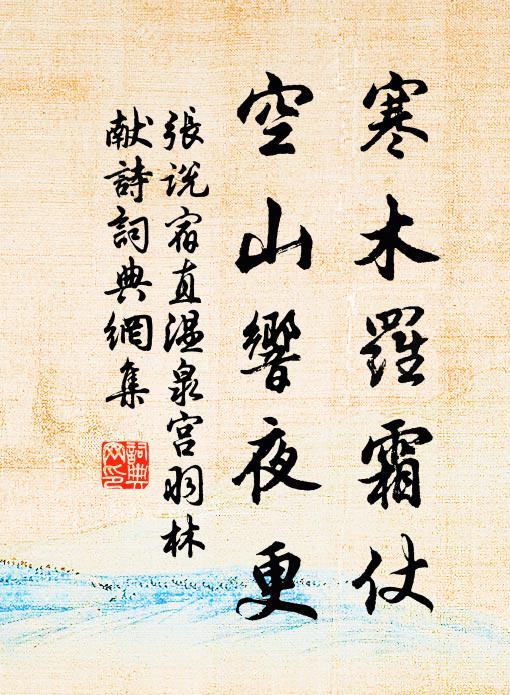 寒木羅霜仗
空山響夜更
張说宿直温泉宫羽林
献詩詞典網集
詞典
网印